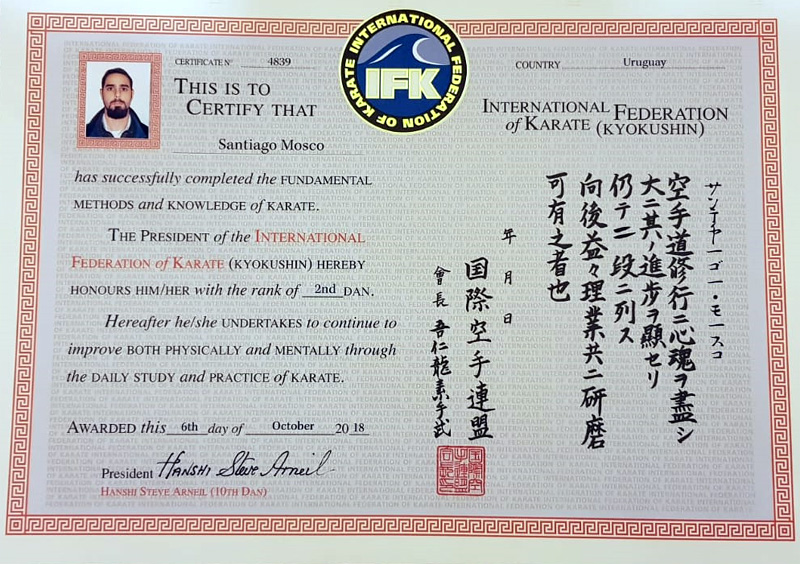 CERTIFICATE Nº 4839
THIS IS TO
CERTIFY THAT
Santiago Mosco
has successfully completed the FUNDAMENTAL
METHODS and KNOWLEDGE of KARATE.
THE PRESIDENT of the INTERNATIONAL
FEDERATION OF KARATE (KYOKUSHIN) HEREBY
HONOURS HIM/HER with the rank of 2nd DAN.
Hereafter he/she UNDERTAKES to continue to
improve BOTH PHYSICALLY and MENTALLY through
the DAILY STUDY and PRACTICE of KARATE.
AWARDED this 6th day of October 2018
President Hanshi Steve Arneil
HANSHI STEVE ARNEIL (10TH DAN)
INTERNATIONAL FEDERATION OF KARATE
IFK
COUNTRY Uruguay
INTERNATIONAL FEDERATION
of KARATE (KYOKUSHIN)
サンテヤーゴー・モースコ
空手道修行ニ心魂ヲ盡シ
大ニ其ノ進歩ヲ顯セリ
仍テ二段ニ列ス
向後益々理業共ニ研磨
可有之者也
年月日
国際空手連盟
會長 吾仁龍素手武